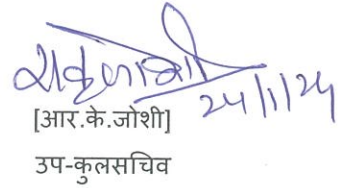 24/1/24
[आर.के.जोशी]
उप-कुलसचिव